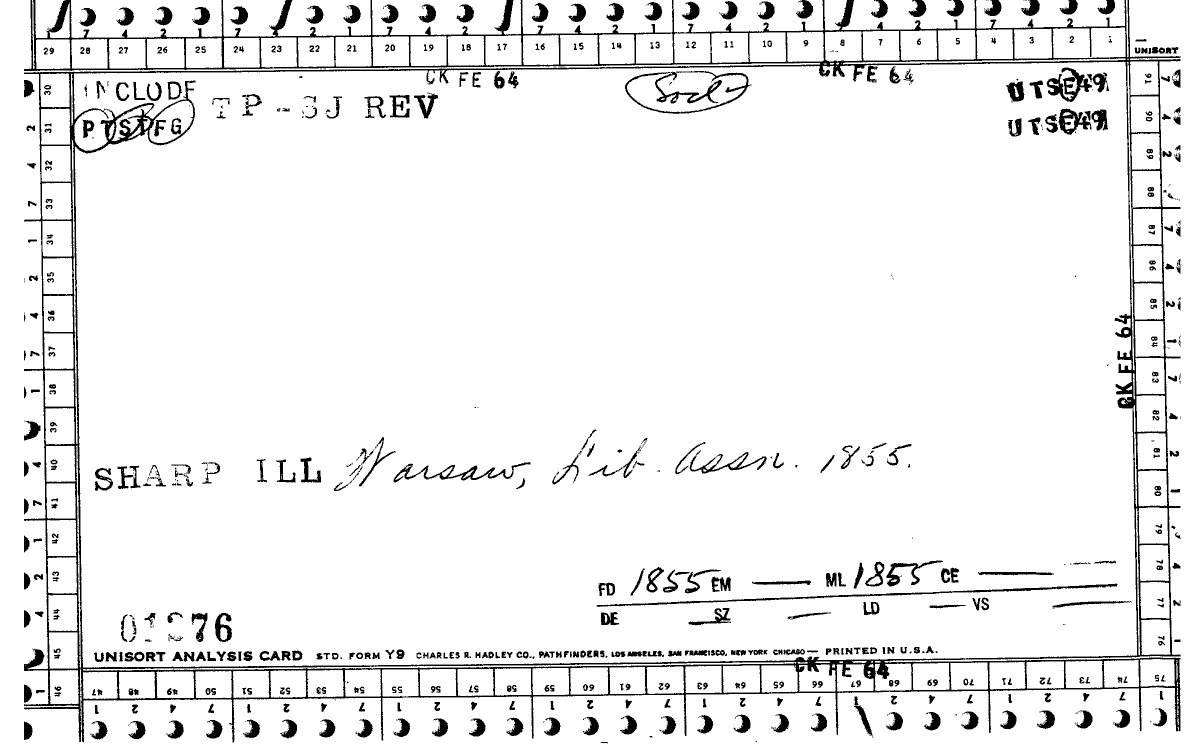 7 4 2 1 7 4 2 1 7 4 2 1 7 4 2 1 7 4 2 1 7 4 2 1
29 28 27 26 25 24 23 22 21 20 19 18 17 16 15 14 13 12 11 10 9 8 7 6 5 4 3 2 1 UNISORT
INCLUDE CK FE 64 CK FE 64 UTSE49
TP-SJ REV
PTSTFG UTSE49
30 31 32 33 34 35 36 37 38 39 40 41 42 43 44 45 46
91 90 89 88 87 86 85 84 83 82 81 80 79 78 77 76
CK FE 64
SHARP ILL Warsaw, Lib. Assn. 1855.
FD 1855 EM — ML 1855 CE —
DE SZ — LD — VS —
76
UNISORT ANALYSIS CARD STD. FORM Y9 CHARLES R. HADLEY CO., PATHFINDERS, LOS ANGELES, SAN FRANCISCO, NEW YORK CHICAGO — PRINTED IN U.S.A.
CK FE 64
47 48 49 50 51 52 53 54 55 56 57 58 59 60 61 62 63 64 65 66 67 68 69 70 71 72 73 74 75
1 2 4 7 1 2 4 7 1 2 4 7 1 2 4 7 1 2 4 7 1 2 4 7 1 2 4 7 1